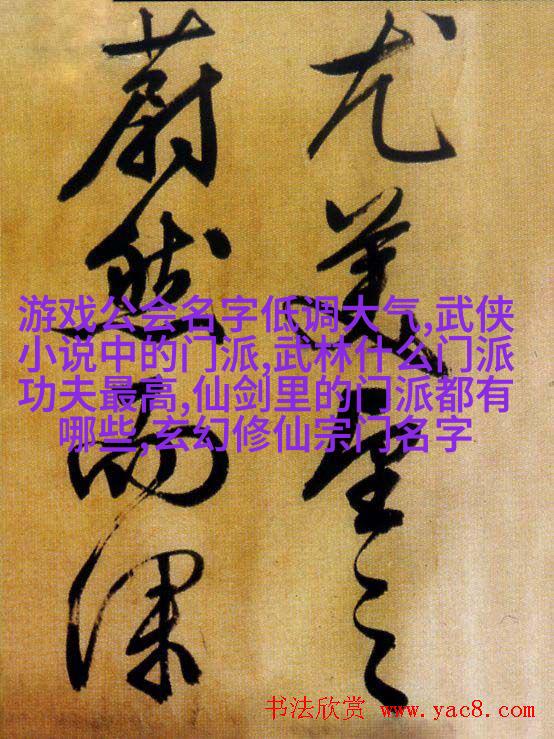 尤美望之
蔚然而深
游戏公会名字低调大气,武侠
小说中的门派,武林什么门派
功夫最高,仙剑里的门派都有
哪些,玄幻修仙宗门名字
书法欣赏 www.yac8.com